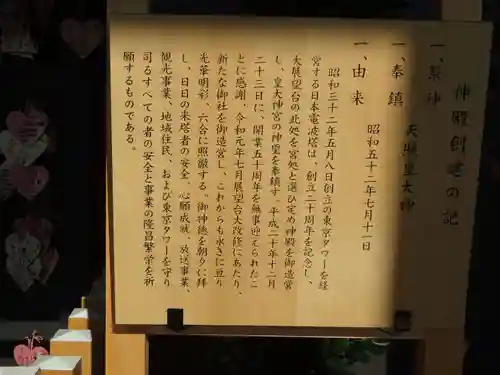 神殿創建の記
一、祭神
天照皇大神
一、奉鎮
昭和五十二年七月十一日
一、由来
昭和三十二年五月八日創立の東京タワーを経
営する日本電波塔は、創立二十周年を記念し、
大展望台の此処を宮処と選び定め神殿を御造営
し、皇大神宮の神璽を奉鎮す。平成二十年十二月
二十三日に、開業五十周年を無事迎えられたこ
とに感謝、令和元年七月展望台大改修にあたり、
新たな御社を御造営し、これからも永きに亘り
光華明彩、六合に照徹する。御神徳を朝りに拝
し、日日の来塔者の安全、心願成就、放送事業、
観光事業、地域住民、および東京タワーを守り
司るすべての者の安全と事業の隆昌繁栄を祈
願するものである。